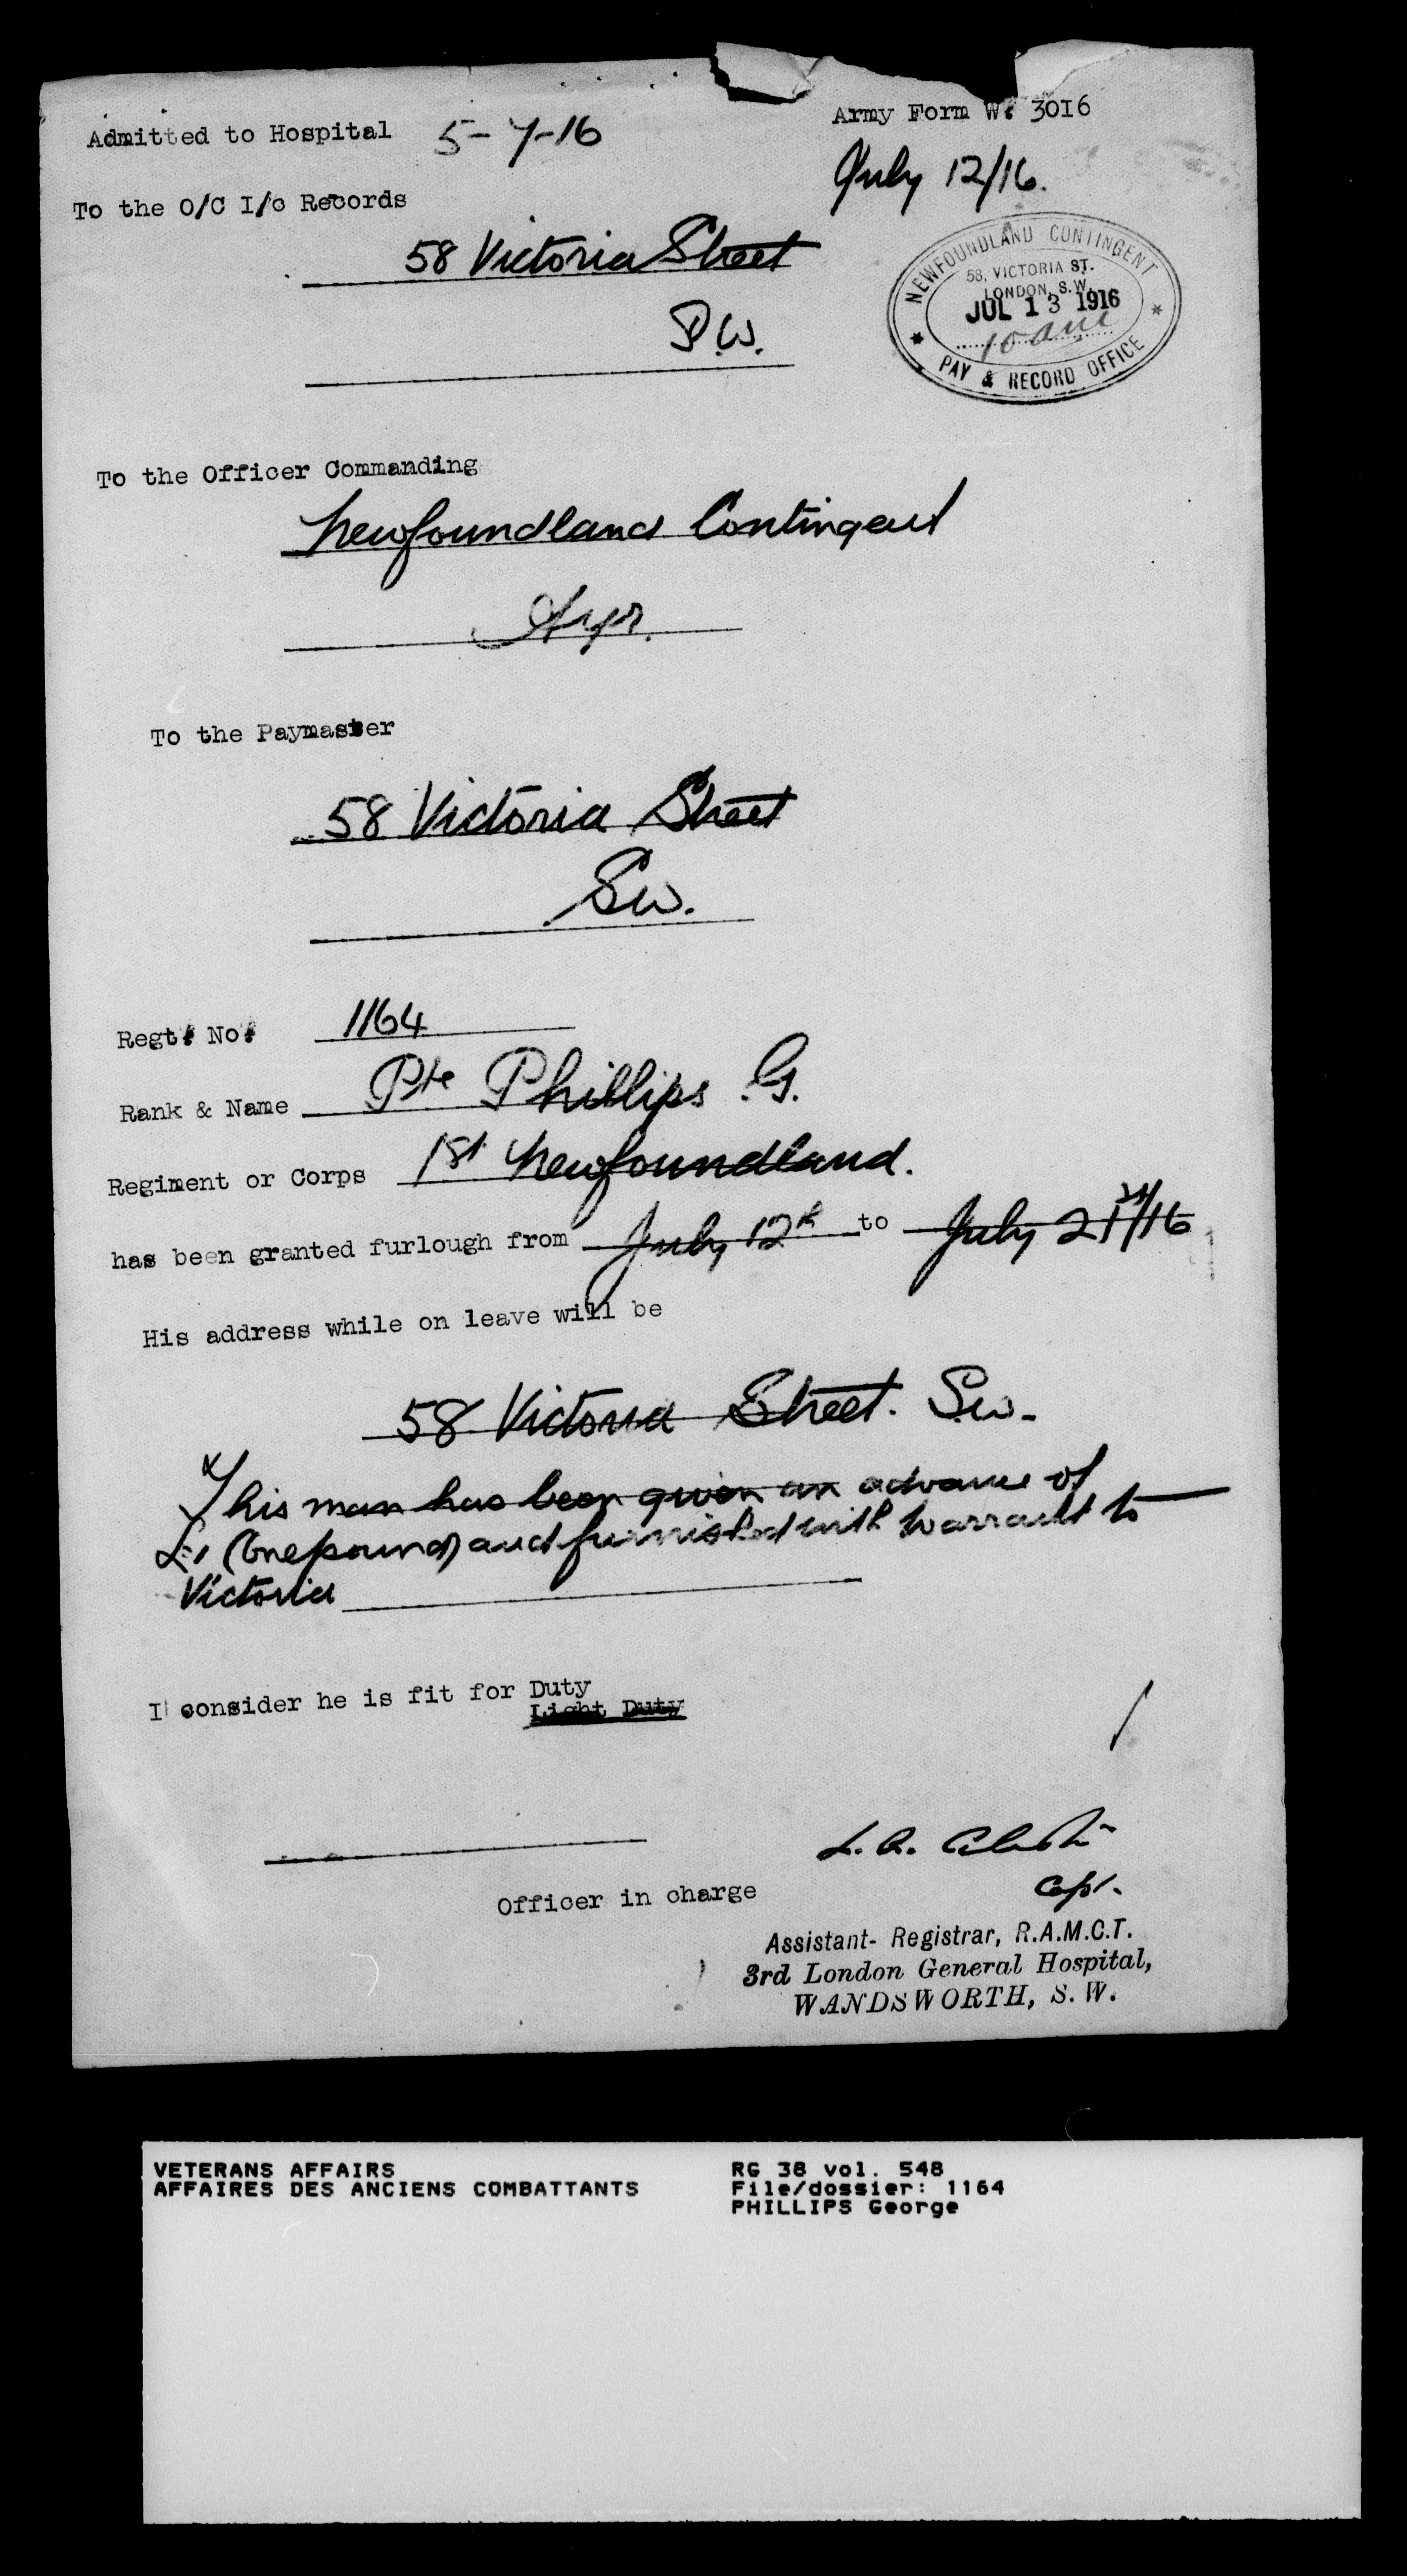 Admitted to Hospital 5-7-16
Army Form W. 3016
July 12/16.
To the O/C I/c Records
58 Victoria Street
S.W.
NEWFOUNDLAND CONTINGENT
58, VICTORIA ST.
LONDON, S.W.
JUL 13 1916
10 am
PAY & RECORD OFFICE
To the Officer Commanding
Newfoundland Contingent
Ayr.
To the Paymaster
58 Victoria Street
Sw.
Regt. No. 1164
Rank & Name Pte Phillips G.
Regiment or Corps 1st Newfoundland.
has been granted furlough from July 12th to July 21st/16
His address while on leave will be
58 Victoria Street. S.w.
This man has been given an advance of
£1 (One pound) and furnished with warrant to
Victoria
I consider he is fit for Duty
Light Duty
L. A.
Capt.
Officer in charge
Assistant- Registrar, R.A.M.C.T.
3rd London General Hospital,
WANDSWORTH, S. W.
VETERANS AFFAIRS
AFFAIRES DES ANCIENS COMBATTANTS
RG 38 vol. 548
File/dossier: 1164
PHILLIPS George